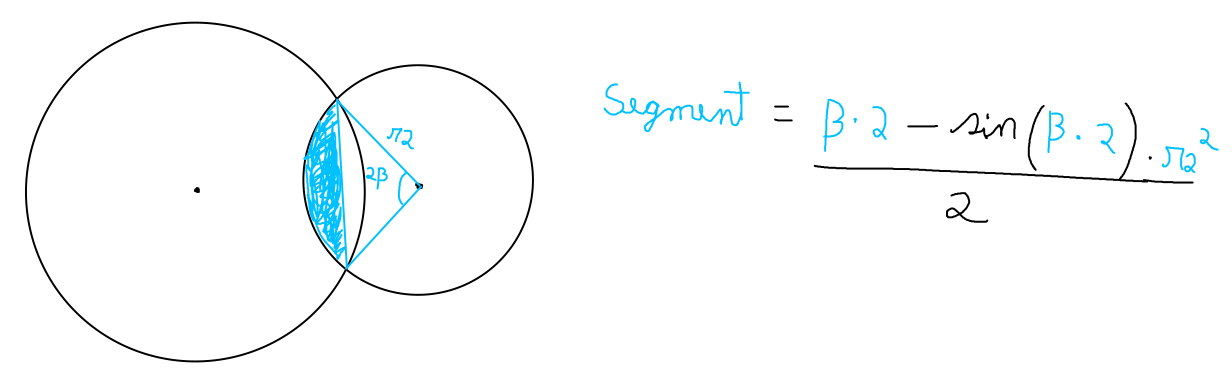 r2
2β
Segment = β·2 - sin(β·2)·r2²
2